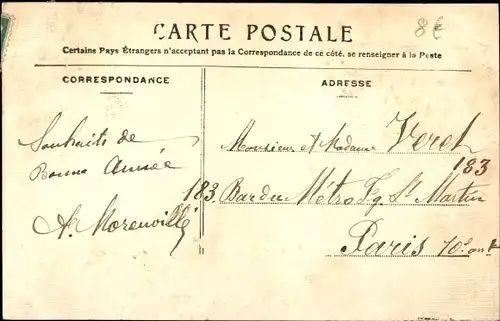 CARTE POSTALE
8€
Certains Pays Étrangers n'acceptant pas la Correspondance de ce côté, se renseigner à la Poste
CORRESPONDANCE
ADRESSE
Souhaits de
Bonne Année
A. Morenville
Monsieur et Madame Veret
183
183. Bar du Métro Fg St Martin
Paris 10e